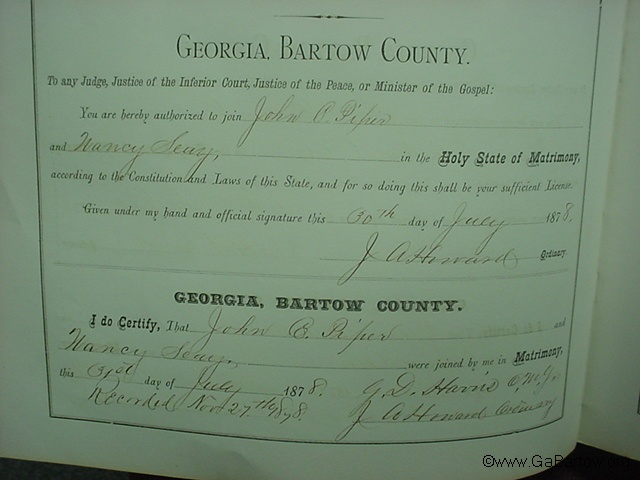 GEORGIA, BARTOW COUNTY.
To any Judge, Justice of the Inferior Court, Justice of the Peace, or Minister of the Gospel:
You are hereby authorized to join John C. Piper
and Nancy Seay, in the Holy State of Matrimony,
according to the Constitution and Laws of this State, and for so doing this shall be your sufficient License.
Given under my hand and official signature this 30th day of July 1878.
J A Howard Ordinary
GEORGIA, BARTOW COUNTY.
I do Certify, That John C. Piper and
Nancy Seay, were joined by me in Matrimony,
this day of July 1878. G. D. Harris
Recorded Nov. 27th 1878. J A Howard Ordinary
©www.GaBartow.